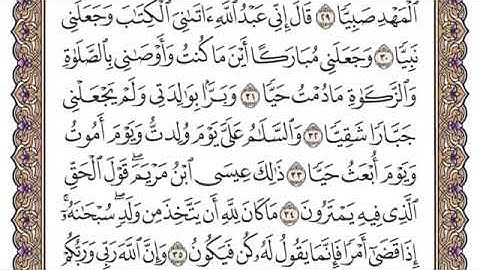 ٱلۡمَهۡدِ صَبِيّٗا ٢٩ قَالَ إِنِّي عَبۡدُ ٱللَّهِ ءَاتَىٰنِيَ ٱلۡكِتَٰبَ وَجَعَلَنِي
نَبِيّٗا ٣٠ وَجَعَلَنِي مُبَارَكًا أَيۡنَ مَا كُنتُ وَأَوۡصَٰنِي بِٱلصَّلَوٰةِ
وَٱلزَّكَوٰةِ مَا دُمۡتُ حَيّٗا ٣١ وَبَرَّۢا بِوَٰلِدَتِي وَلَمۡ يَجۡعَلۡنِي
جَبَّارٗا شَقِيّٗا ٣٢ وَٱلسَّلَٰمُ عَلَيَّ يَوۡمَ وُلِدتُّ وَيَوۡمَ أَمُوتُ
وَيَوۡمَ أُبۡعَثُ حَيّٗا ٣٣ ذَٰلِكَ عِيسَى ٱبۡنُ مَرۡيَمَۖ قَوۡلَ ٱلۡحَقِّ
ٱلَّذِي فِيهِ يَمۡتَرُونَ ٣٤ مَا كَانَ لِلَّهِ أَن يَتَّخِذَ مِن وَلَدٖۖ سُبۡحَٰنَهُۥٓۚ
إِذَا قَضَىٰٓ أَمۡرٗا فَإِنَّمَا يَقُولُ لَهُۥ كُن فَيَكُونُ ٣٥ وَإِنَّ ٱللَّهَ رَبِّي وَرَبُّكُمۡ